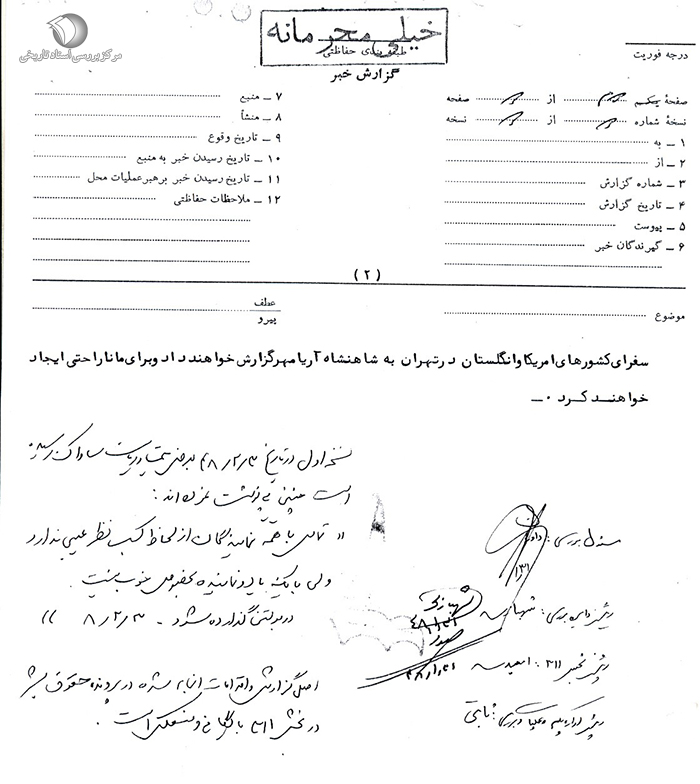 مرکز بررسی اسناد تاریخی
خیلی محرمانه
طبقه بندی حفاظتی
گزارش خبر
درجه فوریت
صفحهٔ یکم از صفحه
نسخهٔ شماره از نسخه
۱ ـ به
۲ ـ از
۳ ـ شماره گزارش
۴ ـ تاریخ گزارش
۵ ـ پیوست
۶ ـ گیرندگان خبر
۷ ـ منبع
۸ ـ منشأ
۹ ـ تاریخ وقوع
۱۰ ـ تاریخ رسیدن خبر به منبع
۱۱ ـ تاریخ رسیدن خبر برهبر عملیات محل
۱۲ ـ ملاحظات حفاظتی
(۲)
موضوع
عطف
پیرو
سفرای کشورهای امریکا وانگلستان در تهران به شاهنشاه آریامهر گزارش خواهند داد وبرای ما ناراحتی ایجاد
خواهند کرد ۰ـ
نسخه اول در تاریخ ۴۸/۲/۳ بعرض ریاست ساواک رسیده
است چنین پی نوشت نموده اند :
" تماس با همه نمایندگان از لحاظ کسب نظر عیبی ندارد
ولی با یکی یا دو نماینده بخصوص خوب نیست
در بولتن گذارده شود ـ ۴۸/۲/۳ "
اصل گزارش و اقدامات انجام شده در پرونده حقوق بشر
در بخش ۳۱۱ بایگانی و منعکس است .
مسئول بررسی :
رئیس دایره بررسی :
رئیس بخش ۳۱۱ :
رئیس اداره یکم عملیات و بررسی : ثابتی